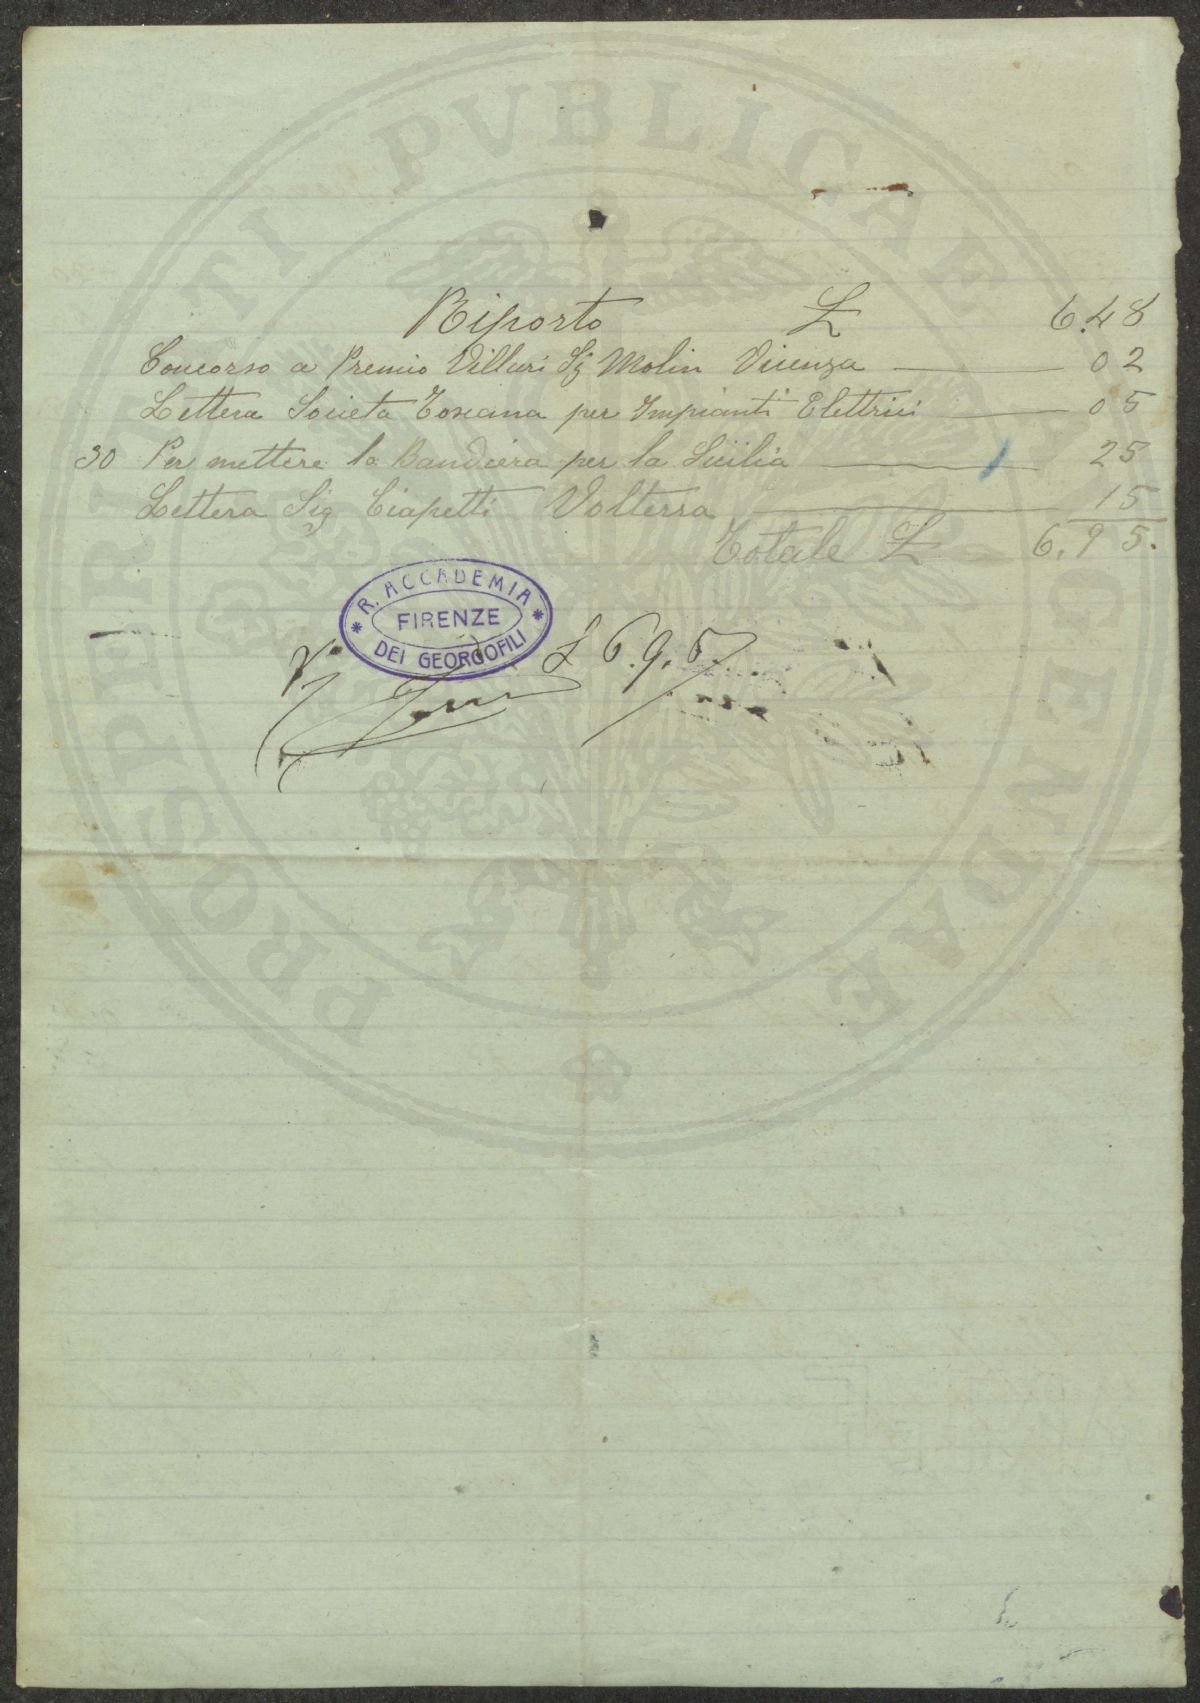 Riporto L 6.48
Concorso a Premio Villari Sig Molin Vicenza 02
Lettera Societa Toscana per Impianti Elettrici 05
30 Per mettere la Bandiera per la Sicilia 25
Lettera Sig Ciapetti Volterra 15
Totale L 6.95.
R. ACCADEMIA
FIRENZE
DEI GEORGOFILI
V° L 6.9.5
PROSPERITATI PVBLICAE AVGENDAE